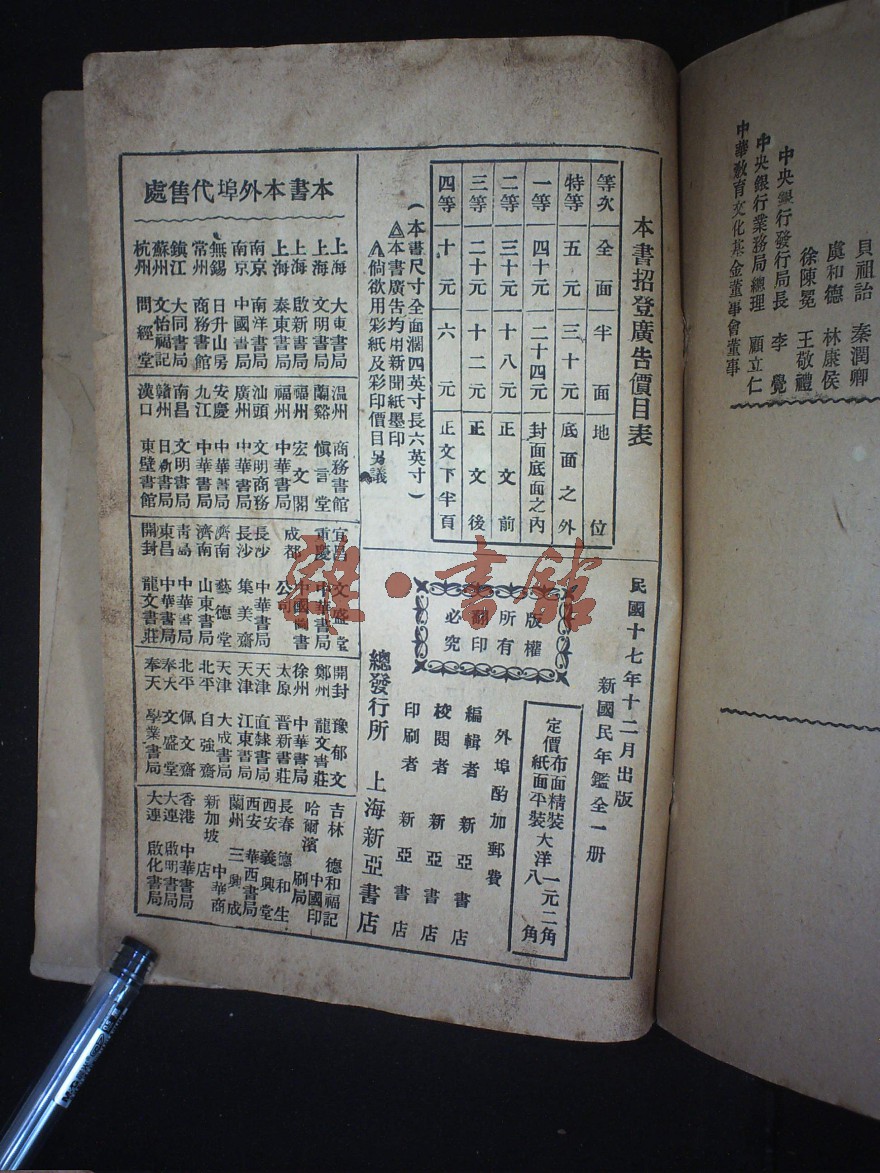 貝祖詒　秦潤卿
虞和德　林康侯
徐陳冕　王敬禮
中央銀行發行局長　李覺
中央銀行業務局總理　顧立仁
中華教育文化基金董事會董事
本書招登廣告價目表
等次　全面　半面　地位
特等　五元　三十元　底面之外
一等　四十元　二十四元　封面底面之內
二等　三十元　十八元　正文前
三等　二十元　十二元　正文後
四等　十元　六元　正文下半頁
（本書尺寸全面濶四英寸長六英寸）
△本書廣告均用新聞紙墨印
△倘欲用彩紙及彩印價目另議
民國十七年十二月出版
新國民年鑑全一册
定價布面精裝大洋一元二角
紙面平裝 八角
外埠酌加郵費
編輯者　新亞書店
校閱者　新亞書店
印刷者　新亞書店
總發行所　上海新亞書店
版權
所有
翻印
必究
本書本外埠代售處
上海　大東書局
上海　文明書局
上海　啟新書局
上海　泰東書局
南京　南洋書局
南京　中國書局
無錫　日升山房
常州　商務書館
鎮江　大同書局
蘇州　文怡福記
杭州　問經堂
温州　商務書館
蘭谿　愼言堂
福州　宏文閣
福州　中華書局
汕頭　文明商務
廣州　中華書局
安慶　中華書局
九江　中華書局
南昌　文明書局
贛州　日新書局
漢口　東壁書館
宜昌　文盛堂
重慶　中華書局
成都　中國圖書公司
長沙　中華書局
長沙　集美齋
濟南　藝德堂
濟南　山東書局
靑島　中華書局
東昌　中華書局
開封　龍文書莊
開封　豫郁文
鄭州　龍文書莊
徐州　中華書局
太原　晋新書莊
天津　直隸書局
天津　江東書局
天津　大成書局
北平　自強齋
北平　佩文齋
奉天　文盛堂
奉天　學業書局
吉林　德和福記
哈爾濱　中國印刷局
長春　德和生
西安　義興堂
西安　華西書局
蘭州　三興成
新加坡　中華商店
香港　中華書局
大連　啟明書局
大連　啟化書局
雅·書館